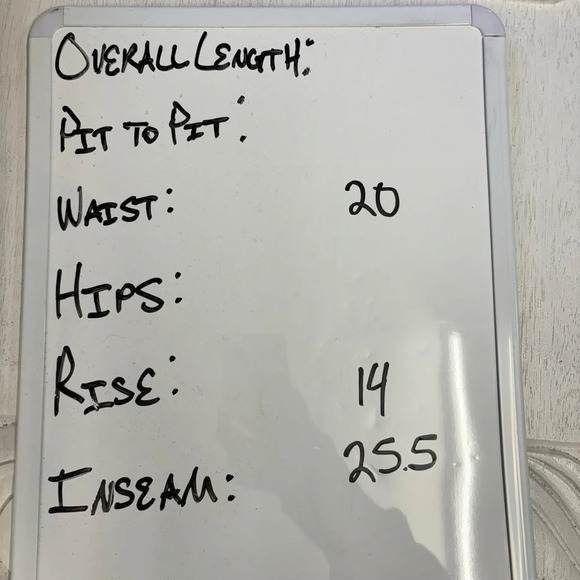 OVERALL LENGTH:
PIT TO PIT:
WAIST: 20
HIPS:
RISE: 14
INSEAM: 25.5